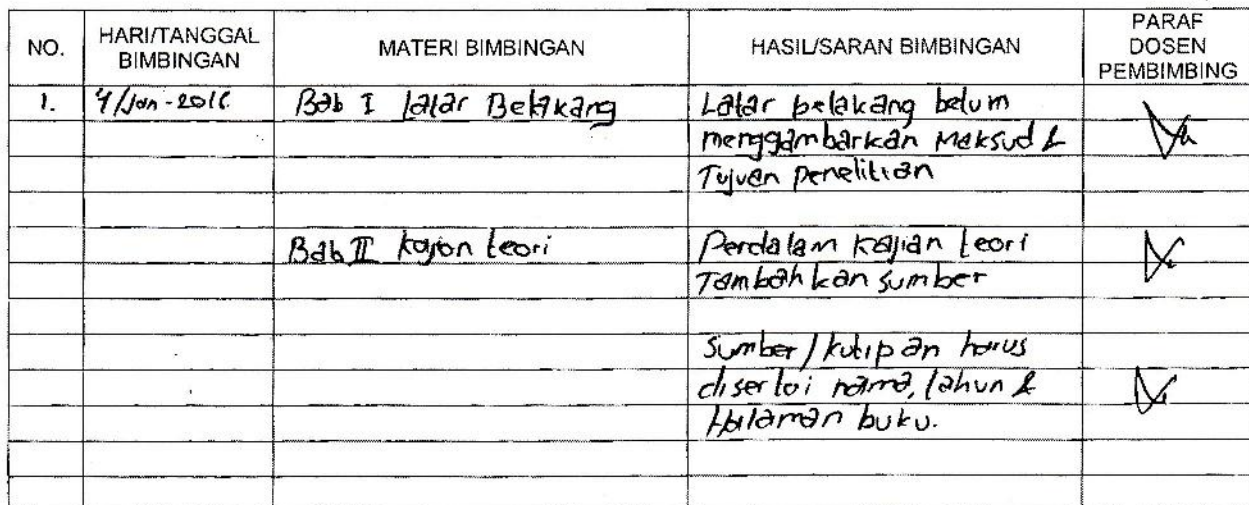 NO. HARI/TANGGAL BIMBINGAN MATERI BIMBINGAN HASIL/SARAN BIMBINGAN PARAF DOSEN PEMBIMBING
1. 4/Jan-2016 Bab I Latar Belakang Latar belakang belum
menggambarkan Maksud &
Tujuan penelitian
Bab II kajian teori Perdalam kajian teori
Tambahkan sumber
Sumber/kutipan harus
disertai nama, tahun &
Halaman buku.